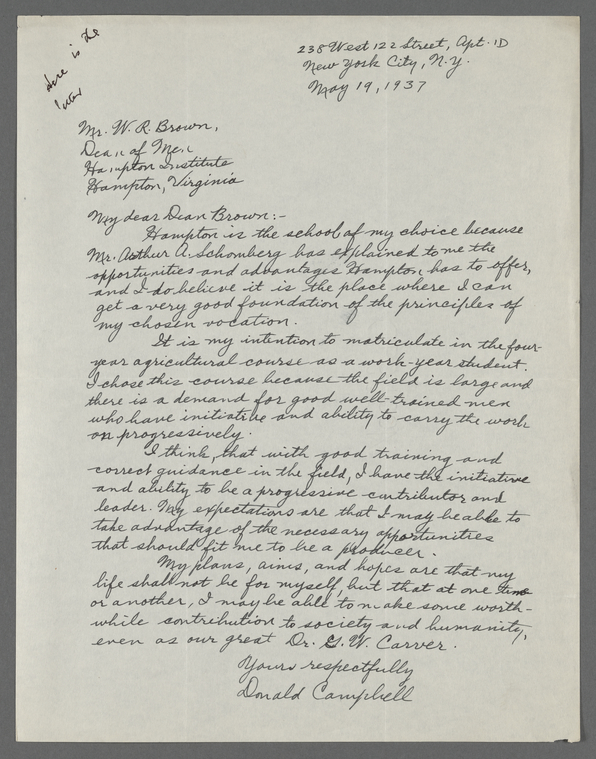 here is the
letter
238 West 122 Street, Apt. 1D
New York City, N.Y.
May 19, 1937
Mr. W. R. Brown,
Dean of Men
Hampton Institute
Hampton, Virginia
My dear Dean Brown:-
Hampton is the school of my choice because
Mr. Arthur A. Schomberg has explained to me the
opportunities and advantages Hampton has to offer,
and I do believe it is the place where I can
get a very good foundation of the principles of
my chosen vocation.
It is my intention to matriculate in the four-
year agricultural course as a work-year student.
I chose this course because the field is large and
there is a demand for good well-trained men
who have initiative and ability to carry the work
on progressively.
I think, that with good training and
correct guidance in the field, I have the initiative
and ability to be a progressive contributor and
leader. My expectations are that I may be able to
take advantage of the necessary opportunities
that should fit me to be a producer.
My plans, aims, and hopes are that my
life shall not be for myself but that at one time
or another, I may be able to make some worth-
while contribution to society and humanity,
even as our great Dr. G. W. Carver.
Yours respectfully
Donald Campbell